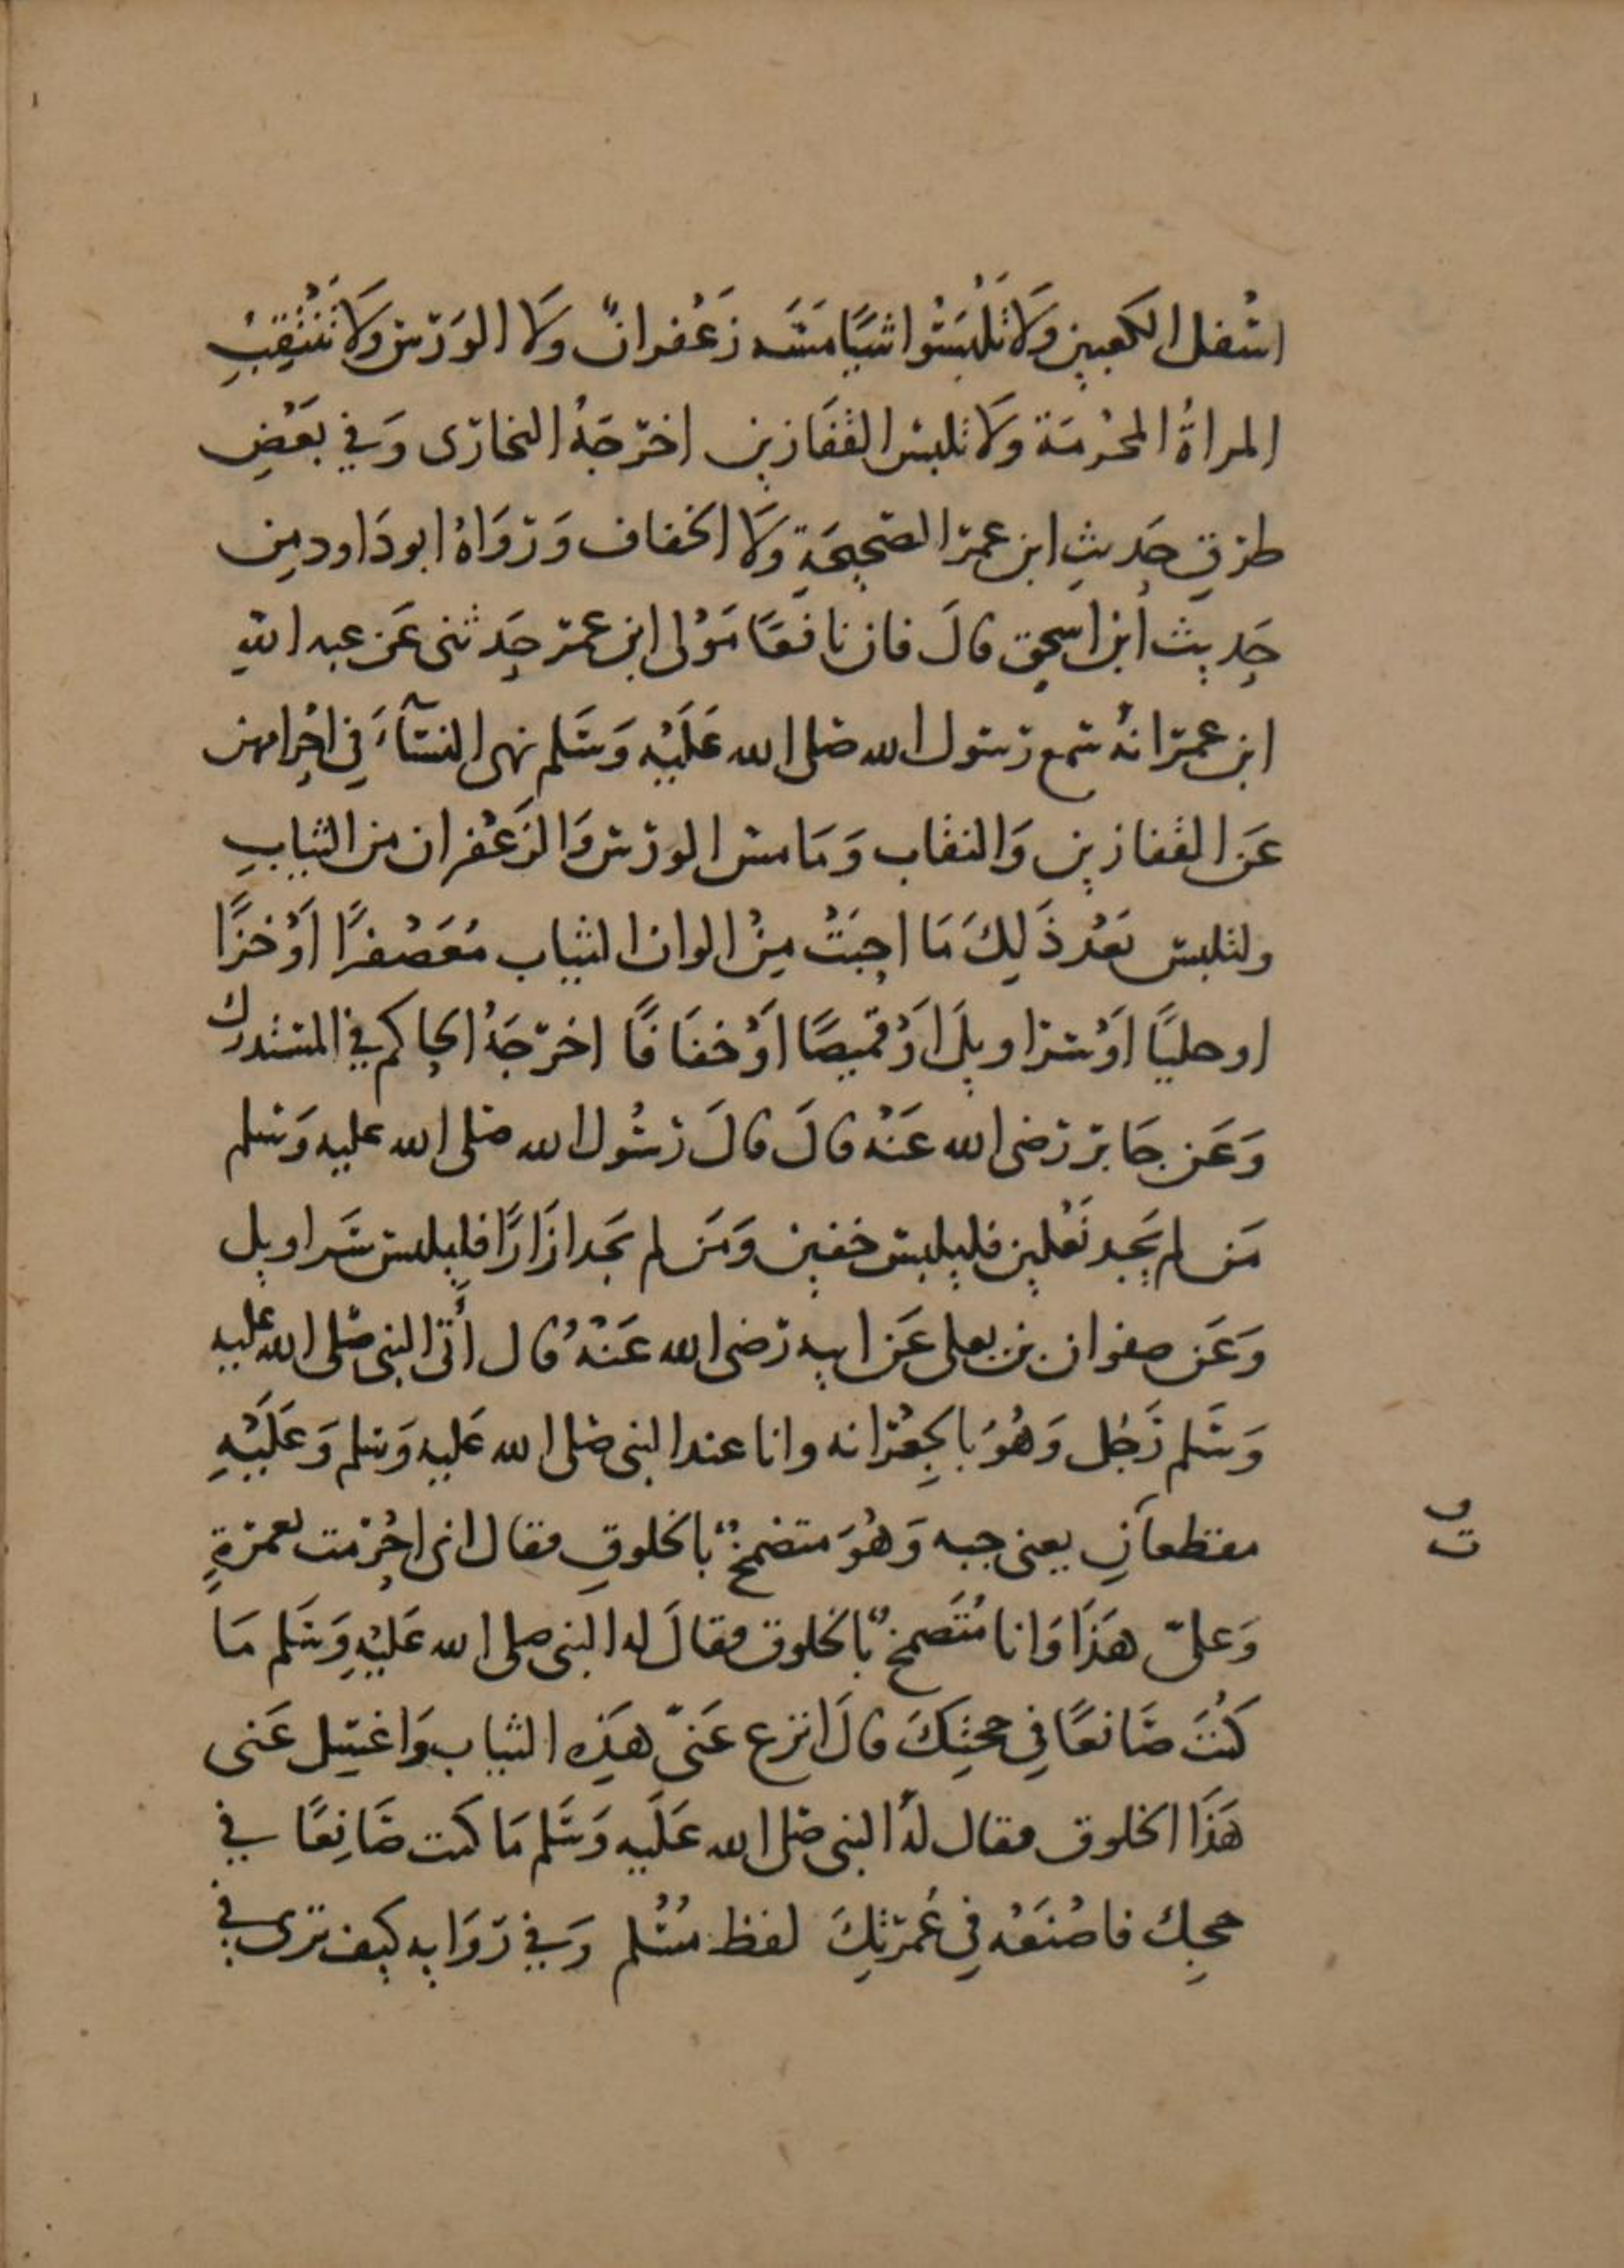 اسْفل الكعبين وَلَا تَلْبَسُوا شَيًا مَسَّه زَعْفرانٌ وَلَا الوَرس وَلَا تَنْتَقِبِ
المراةُ المحْرمَة وَلَا تلبس القفَازين اخرجَهُ البخارى وَفي بَعْضِ
طرقِ حَديثِ ابن عمر الصَّحيحَةِ وَلَا الخفاف وَرَوَاهُ ابو دَاود مِن
حَديث ابن اسحق قالَ فان نافعًا مَوْلى ابن عمر حَدثنى عَن عبد اللهِ
ابن عمر انهُ سَمع رسول الله صلى الله عَلَيْه وَسَلم نهى النسَآءَ فِي احْرامهن
عَن القفازين وَالنقاب وَمَا مس الورس وَالزَعْفران من الثيابِ
ولتلبس بَعْد ذَلِكَ مَا احبَتْ مِنْ الوان الثياب مُعَصْفرًا اَوْ خزًا
او حليًا اَوْ سراويلَ اَوْ قميصًا اَوْ خفافًا اخرجَهُ الحاكم فِي المستدرك
وَعَن جَابر رَضى الله عَنْه قالَ قالَ رسُول الله صلى الله عليه وَسلم
مَن لم يَجِد نَعْلين فليلبس خفين وَمَن لم يَجد ازَارًا فليلبس سَراويل
وَعَن صفوان بن يعلى عَن ابيه رضى الله عَنْهُ قال أتى النبى صَلى الله عليه
وَسَلم رَجُل وَهُوَ بالجِعْرانه وانا عند النبى صَلى الله عَليه وَسلم وَعَلَيْهِ
مقطعاتٍ يعنى جبه وَهُوَ متضمخٌ بالخلوقِ فقال انى احْرَمت بعمرةٍ
وَعلىّ هَذَا وَانا مُتَضمخٌ بالخلوق فقالَ له النبى صلى الله عَليْهِ وَسَلم مَا
كنْتَ صَانعًا فِي حجتِكَ قالَ انزع عَنىّ هَذِه الثياب وَاغتسِل عَنى
هَذَا الخلوق فقال لهُ النبى صَلى الله عَلَيه وَسَلم مَا كنت صَانِعًا في
حجِك فاصْنَعْه فِي عُمرتِكَ لفظ مسْلم وَفي رَوَايه كيف ترى في